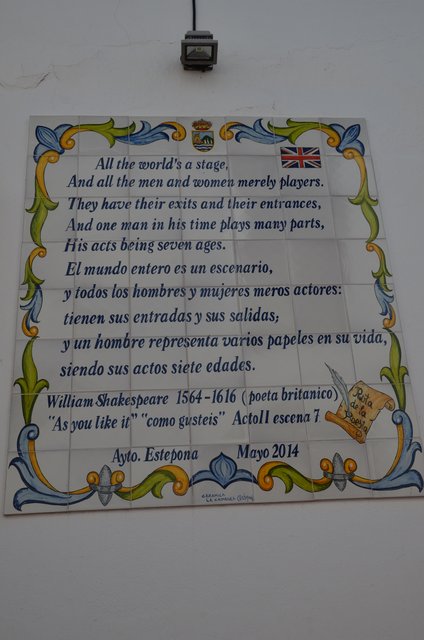 All the world's a stage,
And all the men and women merely players.
They have their exits and their entrances,
And one man in his time plays many parts,
His acts being seven ages.
El mundo entero es un escenario,
y todos los hombres y mujeres meros actores:
tienen sus entradas y sus salidas;
y un hombre representa varios papeles en su vida,
siendo sus actos siete edades.
William Shakespeare 1564-1616 (poeta britanico)
"As you like it" "como gusteis" ActoII escena 7
Ruta
de la
Poesía
Ayto. Estepona Mayo 2014
CERAMICA